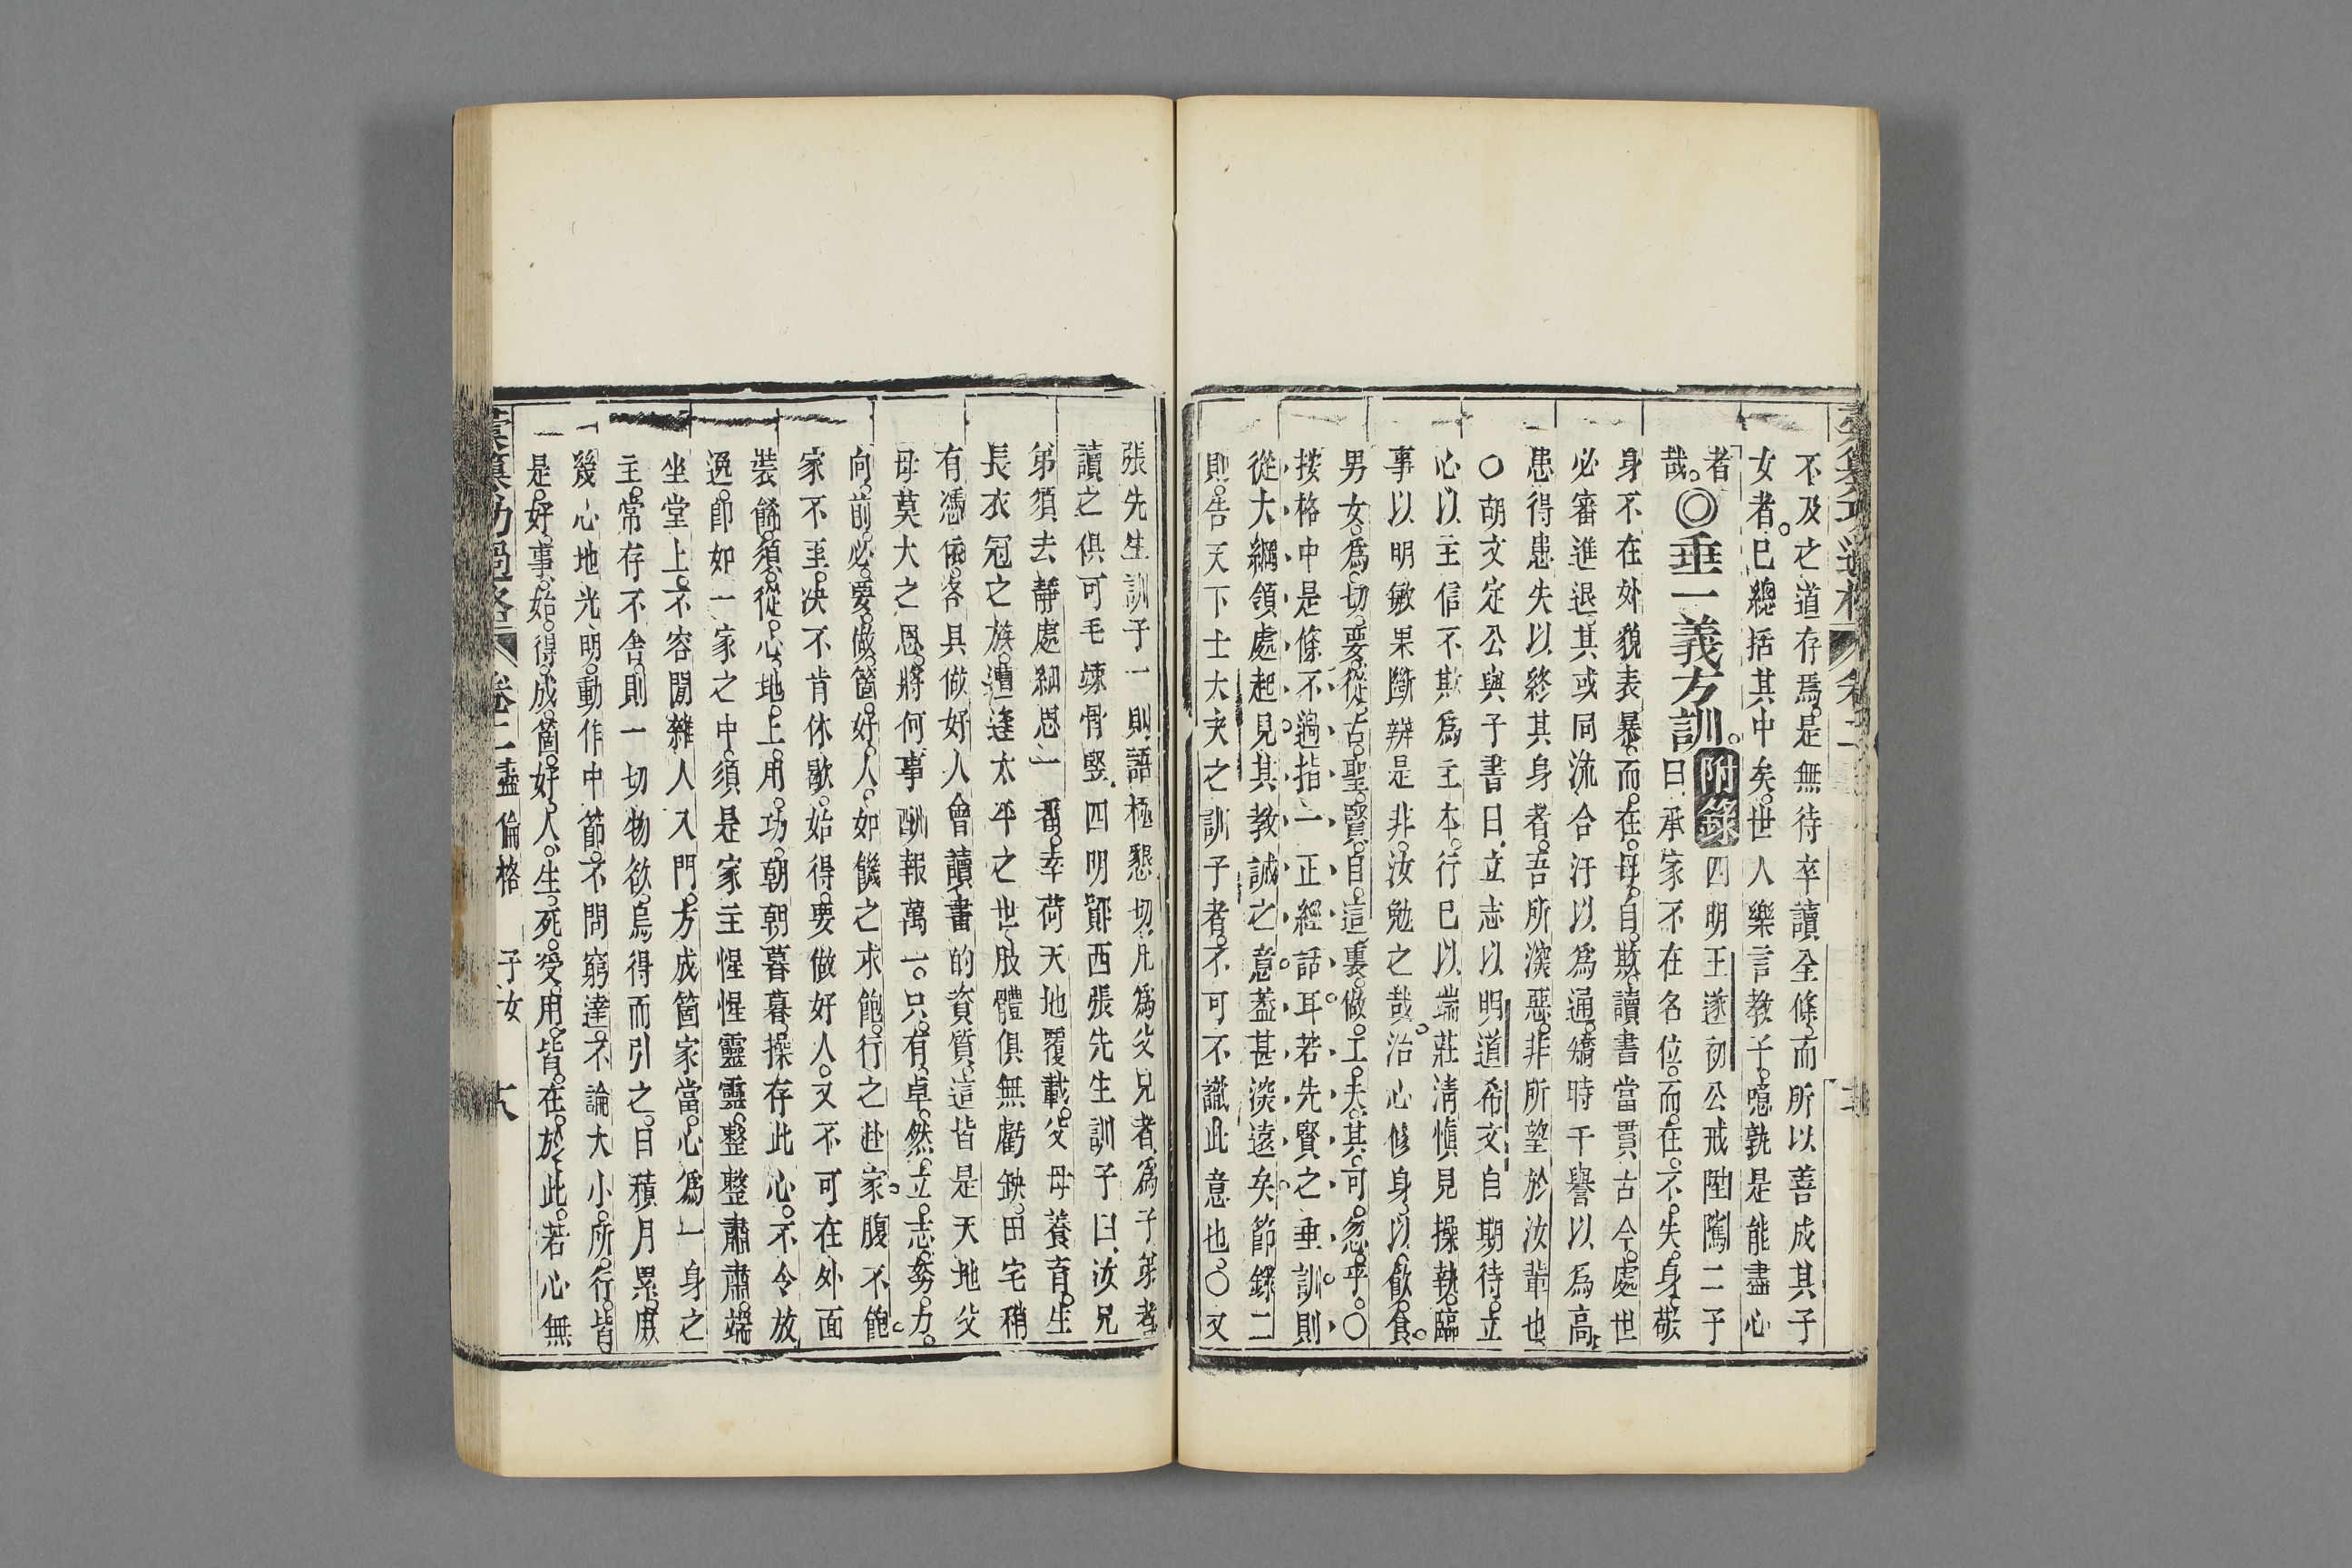 不及之道存焉是無待卒讀全條而所以善成其子
女者已總括其中矣世人樂言教子噫孰是能盡心
者哉◎垂一義方訓附錄四明王遂初公戒陞隲二子
曰承家不在名位而在不失身敬
身不在外貌表暴而在毋自欺讀書當貫古今處世
必審進退其或同流合汙以爲通矯時干譽以爲高
患得患失以終其身者吾所深惡非所望於汝輩也
○胡文定公與子書曰立志以明道希文自期待立
心以主信不欺爲主本行已以端莊淸愼見操執臨
事以明敏果斷辨是非汝勉之哉治心修身以飮食
男女爲切要從古聖賢自這裏做工夫其可忽乎○
按格中是條不過指一正經話耳若先賢之垂訓則
從大綱領處起見其教誡之意葢甚深遠矣節錄二
則告天下士大夫之訓子者不可不識此意也○又
張先生訓子一則語極懇切凡爲父兄者爲子弟者
讀之俱可毛竦骨竪四明鄮西張先生訓子曰汝兄
弟須去靜處細思一番幸荷天地覆載父母養育生
長衣冠之族遭逢太平之世肢體俱無虧缺田宅稍
有憑依各具做好人會讀書的資質這皆是天地父
母莫大之恩將何事酬報萬一只有卓然立志努力
向前必要做箇好人如饑之求飽行之赴家腹不飽
家不至決不肯休歇始得要做好人又不可在外面
裝飾須從心地上用功朝朝暮暮操存此心不令放
過卽如一家之中須是家主惺惺靈靈整整肅肅端
坐堂上不容閒雜人入門方成箇家當心爲一身之
主常存不舍則一切物欲烏得而引之日積月累庶
幾心地光明動作中節不問窮達不論大小所行皆
是好事始得成箇好人生死受用皆在於此若心無
彙纂功過格 卷二 盡倫格 子女 六